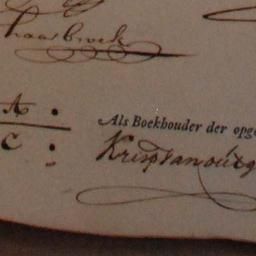 haasbroek
A.
C.
Als Boekhouder der opge
Krisp van ouwg